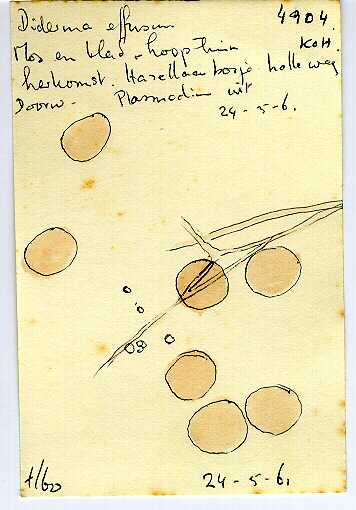 Diderma effusum 4904
Mos en blad, hoop tuin KOH.
herkomst. Hazelaar bosje holle weg
Doorn. Plasmodium wit
24-5-6.
24-5-6.